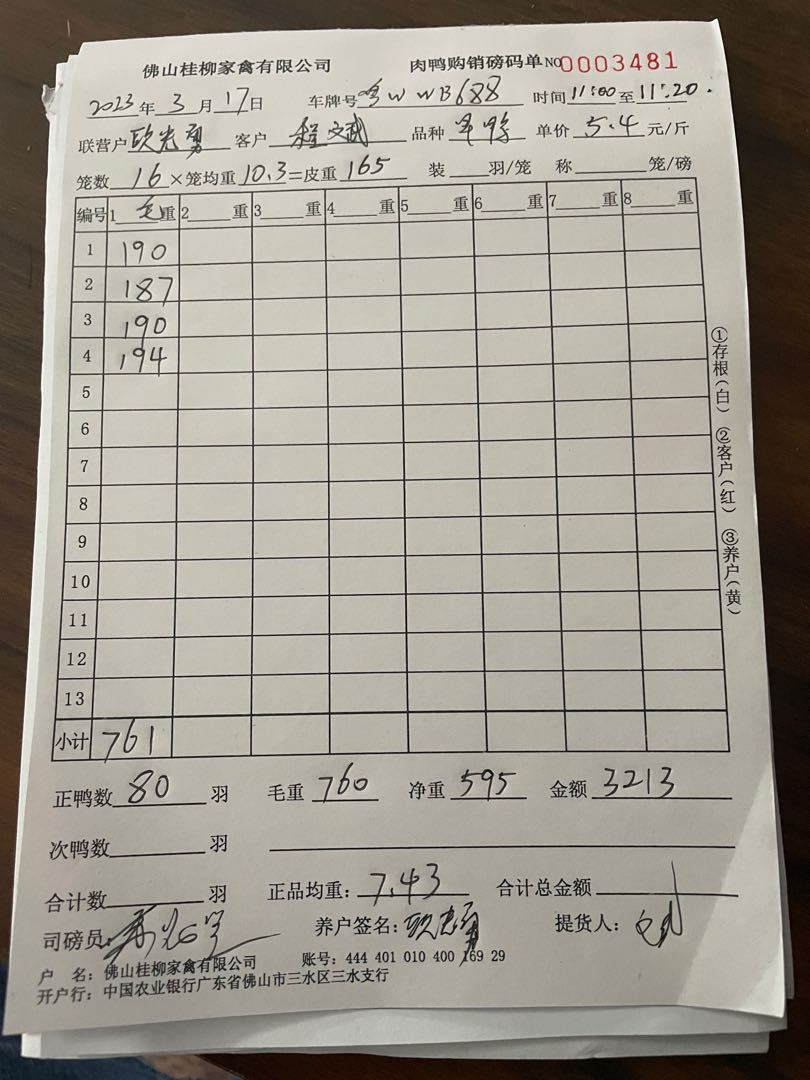 佛山桂柳家禽有限公司 肉鸭购销磅码单 NO 0003481
2023年3月17日 车牌号粤W WB688 时间11:00至11:20.
联营户欧志勇 客户程文武 品种 单价5.4元/斤
笼数16×笼均重10.3=皮重165 装 羽/笼 称 笼/磅
编号 1毛重 2 重 3 重 4 重 5 重 6 重 7 重 8 重
1 190
2 187
3 190
4 194
5
6
7
8
9
10
11
12
13
小计 761
①存根(白) ②客户(红) ③养户(黄)
正鸭数80羽 毛重760 净重595 金额3213
次鸭数 羽
合计数 羽 正品均重:7.43 合计总金额
司磅员: 养户签名:欧志勇 提货人:
户 名:佛山桂柳家禽有限公司 账号:444 401 010 400 169 29
开户行:中国农业银行广东省佛山市三水区三水支行